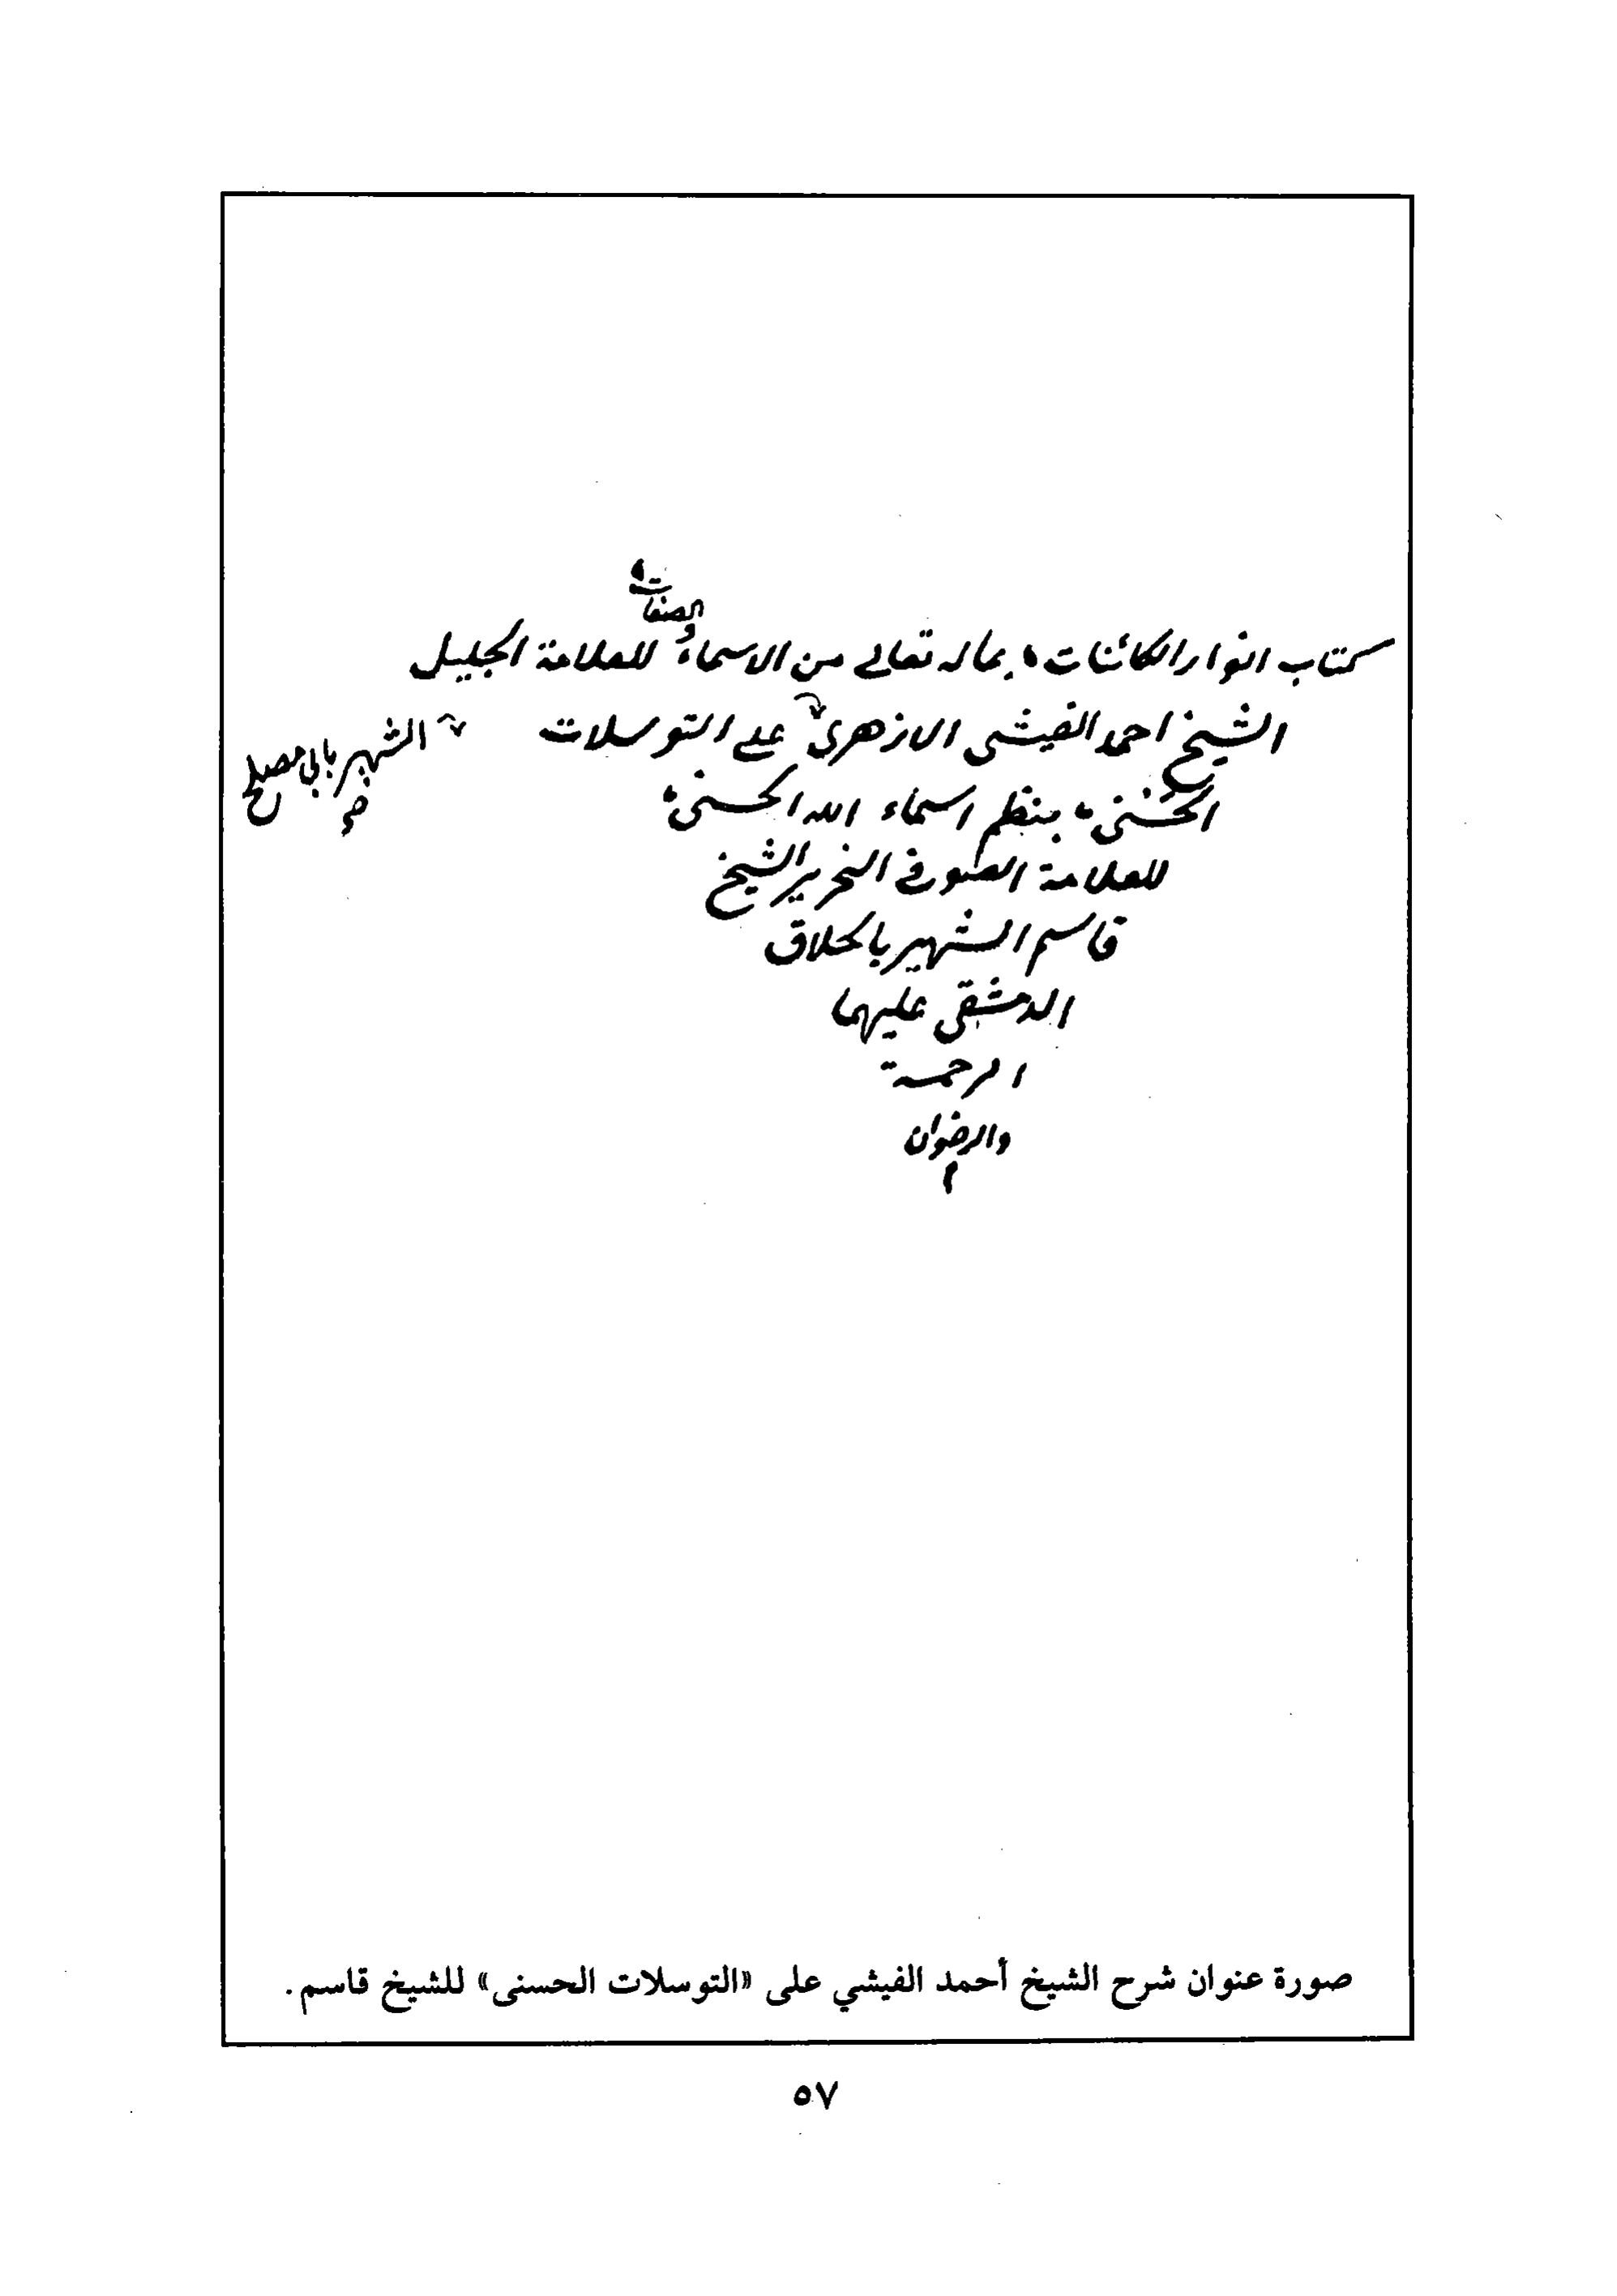 كتاب انوار الكائنات، بماله تعالى من الاسماء والصفات، للعلامة الجليل
الشيخ احمد الفيشى الازهرى على التوسلات
الشهير بابى مصلح
الحسنى، بنظم اسماء الله الحسنى،
للعلامة الصوفى النحرير الشيخ
قاسم الشهير بالحلاق
الدمشقى عليهما
الرحمة
والرضوان
م
صورة عنوان شرح الشيخ أحمد الفيشي على «التوسلات الحسنى» للشيخ قاسم.
٥٧